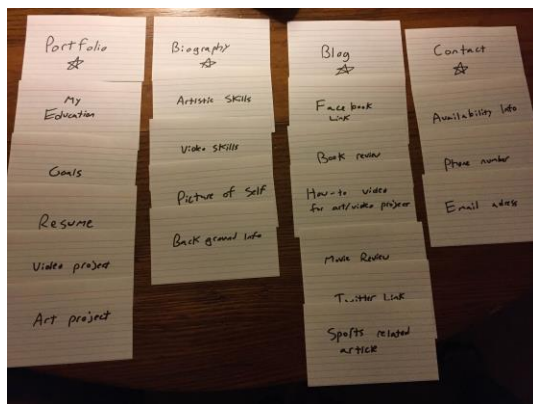 Portfolio
My
Education
Goals
Resume
Video project
Art project
Biography
Artistic Skills
Video skills
Picture of self
Back ground Info
Blog
Face book
Link
Book review
How-to video
for art/video project
Movie Review
Twitter Link
Sports related
article
Contact
Availability Info
Phone number
Email adress